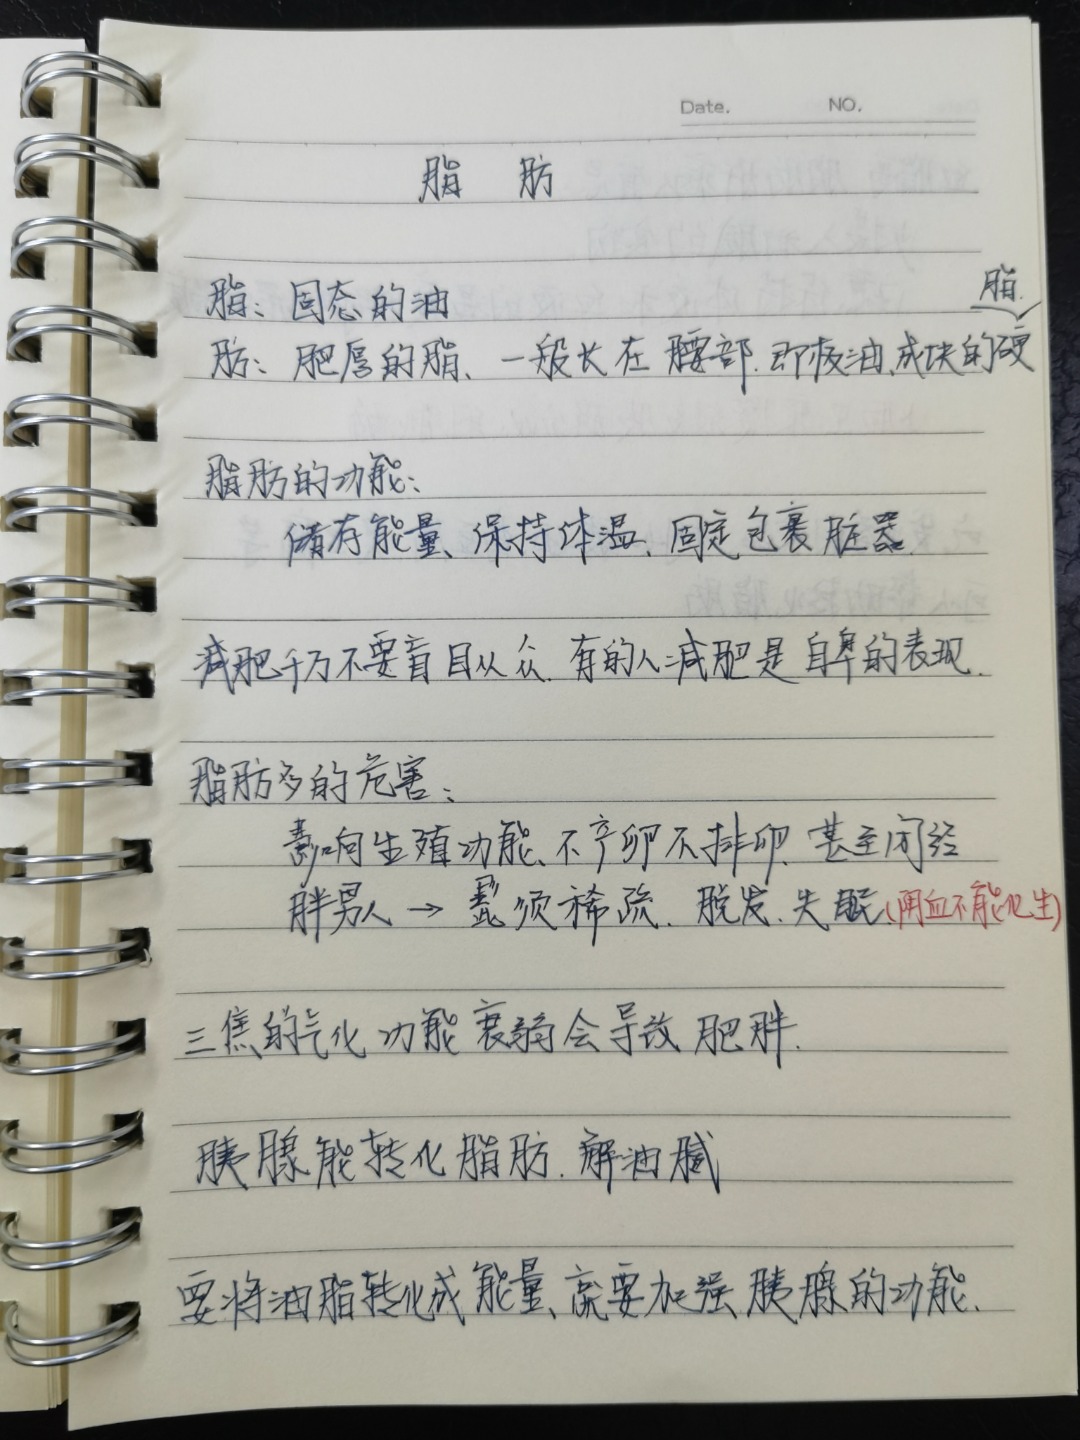 Date. NO.
脂 肪
脂：固态的油
脂.
肪：肥厚的脂、一般长在腰部.即板油、成块的硬
脂肪的功能：
储存能量、保持体温、固定包裹脏器.
减肥千万不要盲目从众.有的人减肥是自卑的表现.
脂肪多的危害：
影响生殖功能、不产卵不排卵.甚至闭经
胖男人→髭须稀疏.脱发.失眠.(阴血不能化生)
三焦的气化功能衰弱会导致肥胖.
胰腺能转化脂肪.解油腻
要将油脂转化成能量、就要加强胰腺的功能.